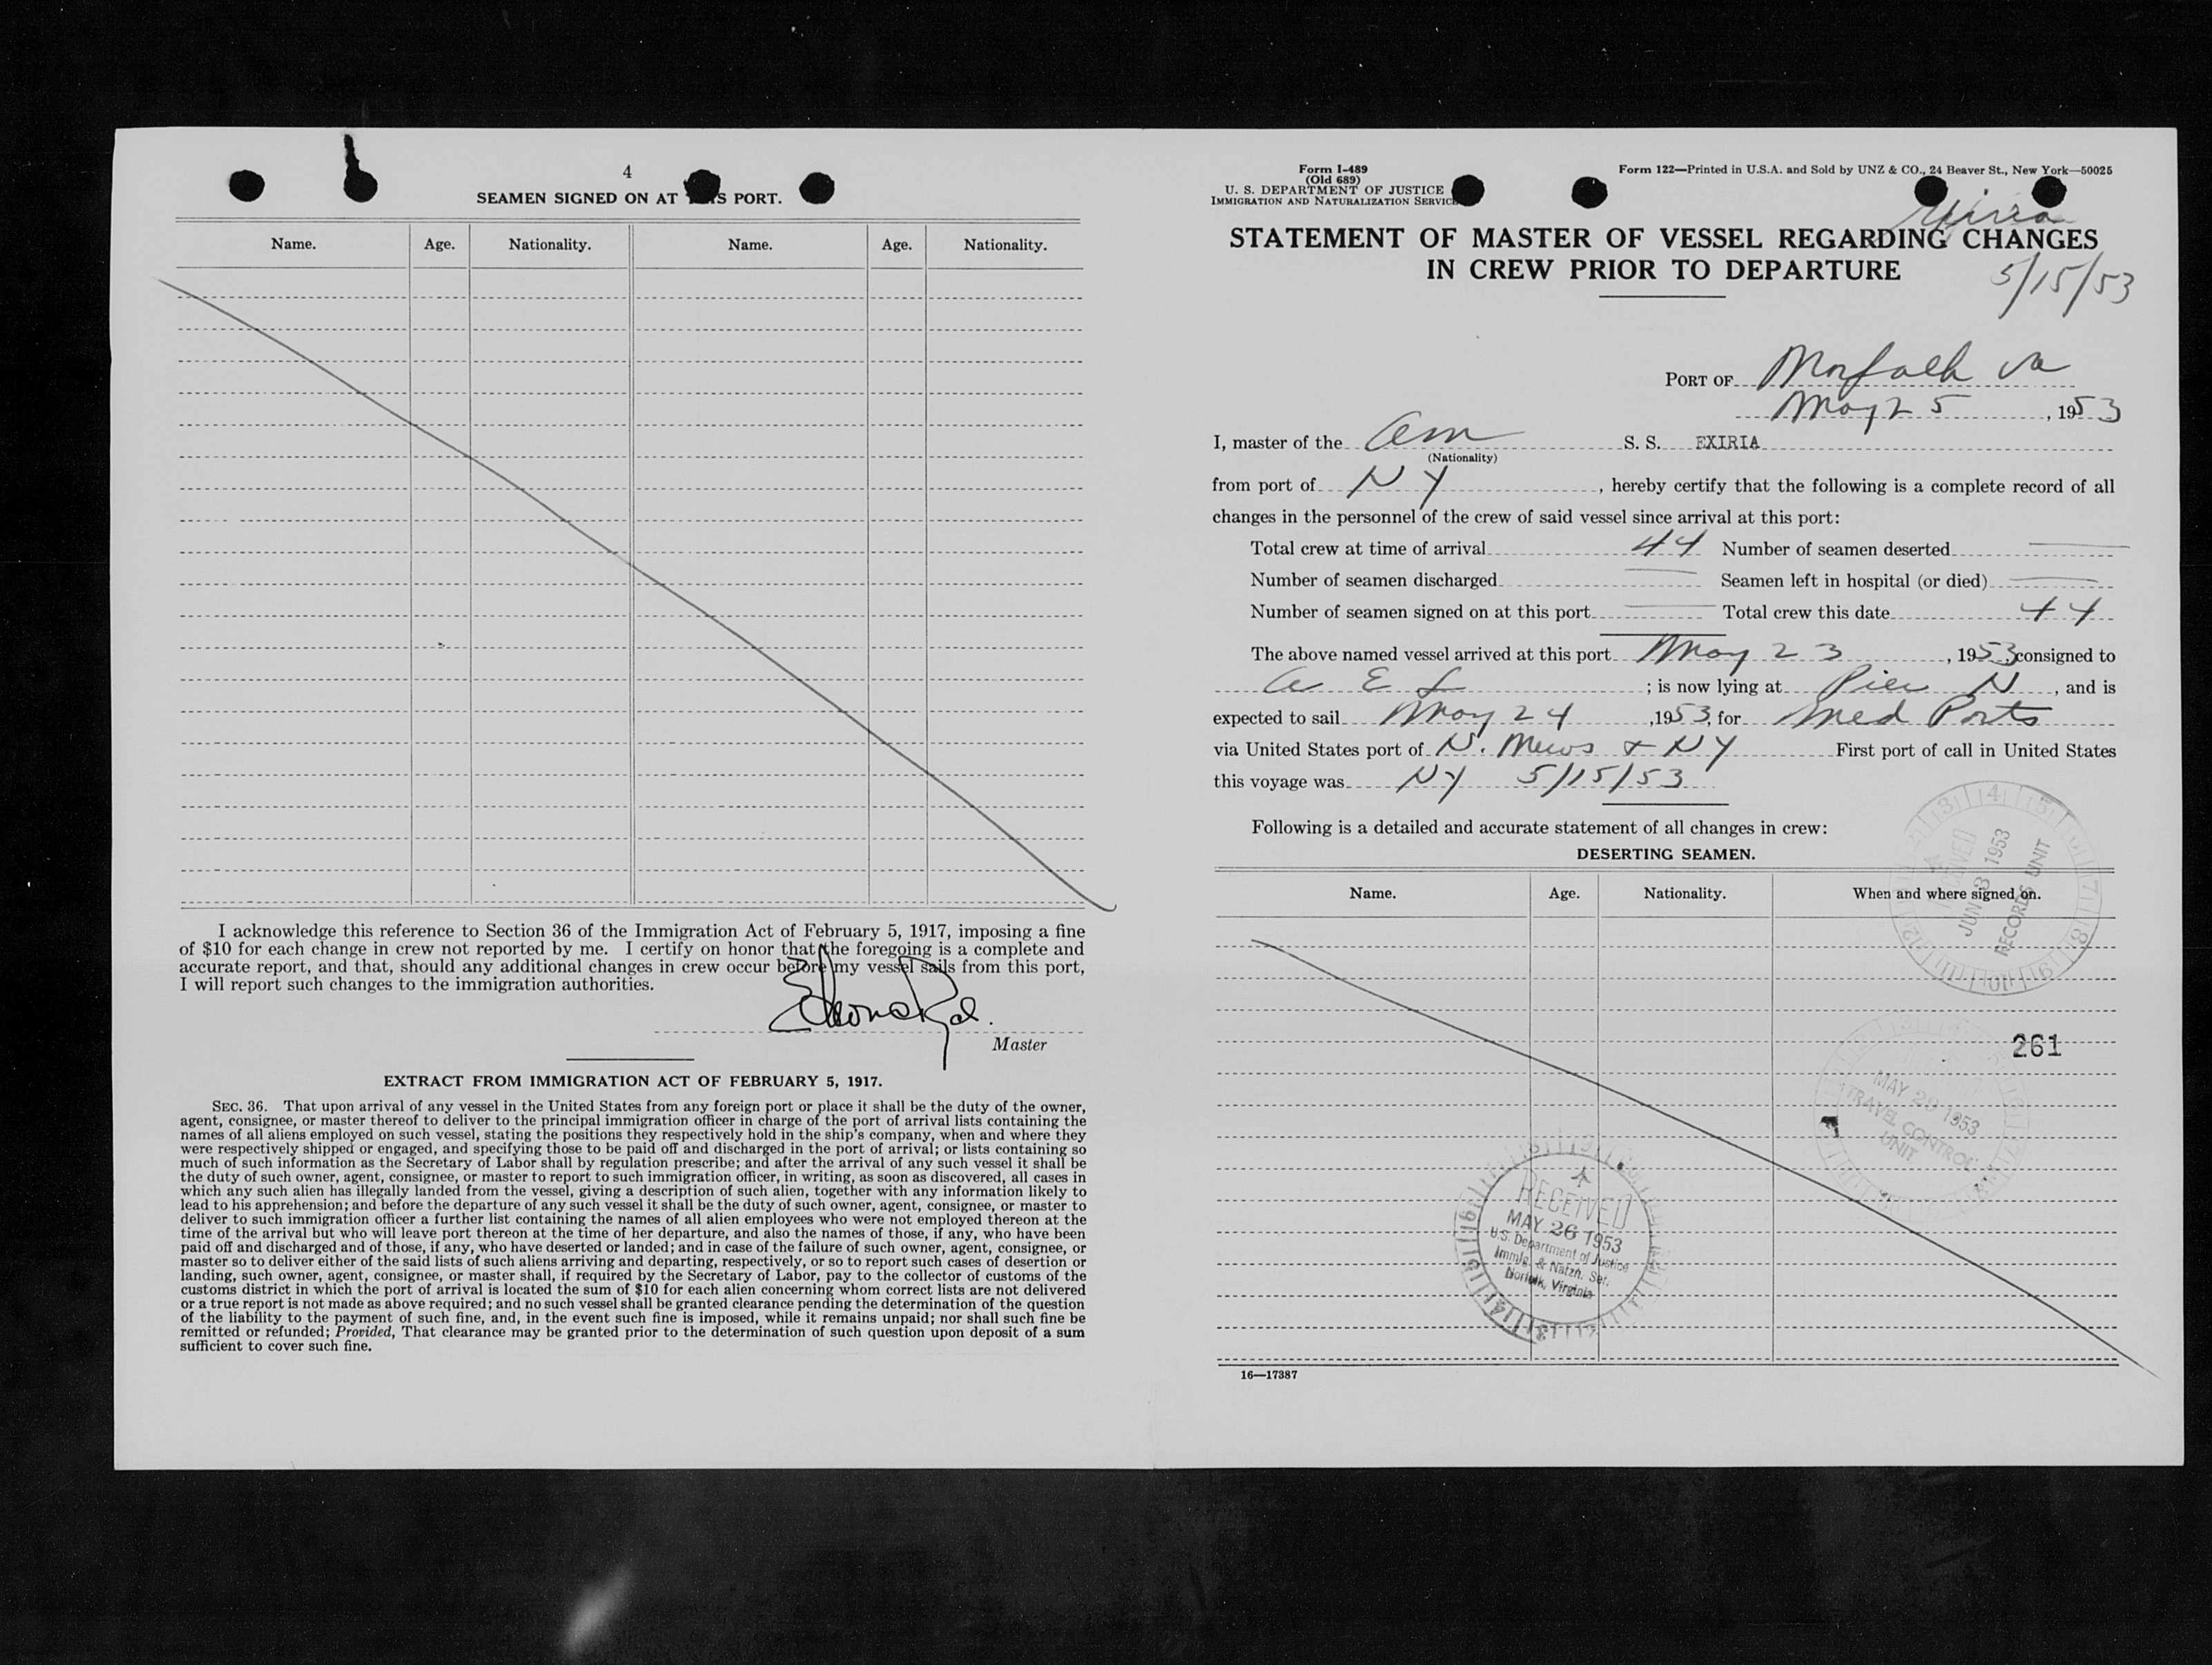 4
SEAMEN SIGNED ON AT THIS PORT.
Name. Age. Nationality. Name. Age. Nationality.
I acknowledge this reference to Section 36 of the Immigration Act of February 5, 1917, imposing a fine
of $10 for each change in crew not reported by me. I certify on honor that the foregoing is a complete and
accurate report, and that, should any additional changes in crew occur before my vessel sails from this port,
I will report such changes to the immigration authorities.
Master
EXTRACT FROM IMMIGRATION ACT OF FEBRUARY 5, 1917.
SEC. 36. That upon arrival of any vessel in the United States from any foreign port or place it shall be the duty of the owner,
agent, consignee, or master thereof to deliver to the principal immigration officer in charge of the port of arrival lists containing the
names of all aliens employed on such vessel, stating the positions they respectively hold in the ship's company, when and where they
were respectively shipped or engaged, and specifying those to be paid off and discharged in the port of arrival; or lists containing so
much of such information as the Secretary of Labor shall by regulation prescribe; and after the arrival of any such vessel it shall be
the duty of such owner, agent, consignee, or master to report to such immigration officer, in writing, as soon as discovered, all cases in
which any such alien has illegally landed from the vessel, giving a description of such alien, together with any information likely to
lead to his apprehension; and before the departure of any such vessel it shall be the duty of such owner, agent, consignee, or master to
deliver to such immigration officer a further list containing the names of all alien employees who were not employed thereon at the
time of the arrival but who will leave port thereon at the time of her departure, and also the names of those, if any, who have been
paid off and discharged and of those, if any, who have deserted or landed; and in case of the failure of such owner, agent, consignee, or
master so to deliver either of the said lists of such aliens arriving and departing, respectively, or so to report such cases of desertion or
landing, such owner, agent, consignee, or master shall, if required by the Secretary of Labor, pay to the collector of customs of the
customs district in which the port of arrival is located the sum of $10 for each alien concerning whom correct lists are not delivered
or a true report is not made as above required; and no such vessel shall be granted clearance pending the determination of the question
of the liability to the payment of such fine, and, in the event such fine is imposed, while it remains unpaid; nor shall such fine be
remitted or refunded; Provided, That clearance may be granted prior to the determination of such question upon deposit of a sum
sufficient to cover such fine.
Form I-489
(Old 689)
U. S. DEPARTMENT OF JUSTICE
IMMIGRATION AND NATURALIZATION SERVICE
Form 122—Printed in U.S.A. and Sold by UNZ & CO., 24 Beaver St., New York—50025
STATEMENT OF MASTER OF VESSEL REGARDING CHANGES
IN CREW PRIOR TO DEPARTURE
5/15/53
PORT OF Norfolk Va
May 25, 1953
I, master of the Am S. S. EXIRIA
(Nationality)
from port of N Y, hereby certify that the following is a complete record of all
changes in the personnel of the crew of said vessel since arrival at this port:
Total crew at time of arrival 44 Number of seamen deserted
Number of seamen discharged Seamen left in hospital (or died)
Number of seamen signed on at this port Total crew this date 44
The above named vessel arrived at this port May 23, 1953, consigned to
A E L ; is now lying at Pier N, and is
expected to sail May 24, 1953, for Med Ports
via United States port of N. News & NY First port of call in United States
this voyage was NY 5/15/53
Following is a detailed and accurate statement of all changes in crew:
DESERTING SEAMEN.
Name. Age. Nationality. When and where signed on.
RECEIVED
JUN 3 1953
RECORDS UNIT
261
MAY 29 1953
TRAVEL CONTROL
UNIT
RECEIVED
MAY 26 1953
U.S. Department of Justice
Immig. & Natzn. Ser.
Norfolk, Virginia
16—17387